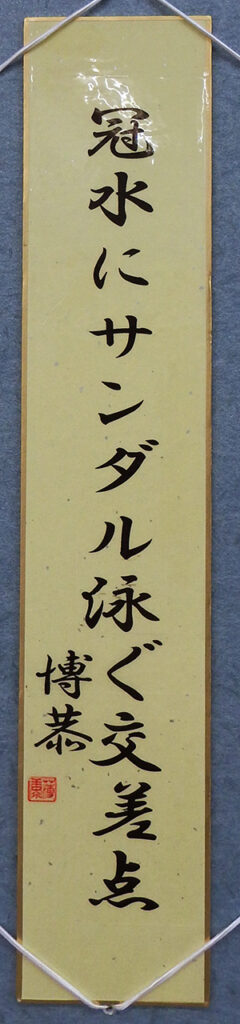 冠水にサンダル泳ぐ交差点
博恭